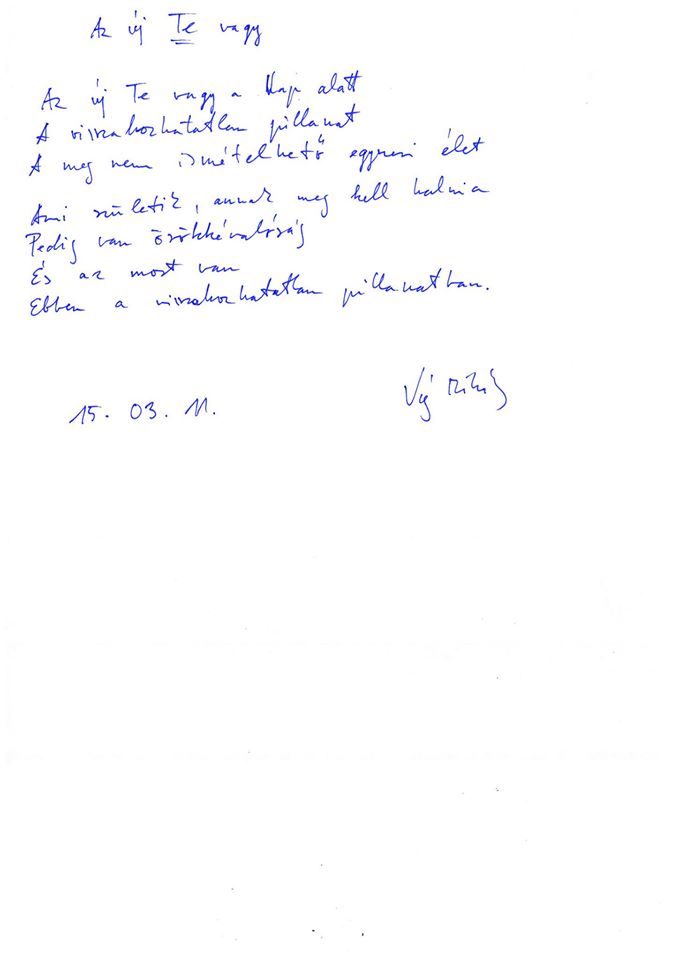 Az új Te vagy
Az új Te vagy a Nap alatt
A visszahozhatatlan pillanat
A meg nem ismételhető egyszeri élet
Ami születik, annak meg kell halnia
Pedig van örökkévalóság
És az most van
Ebben a visszahozhatatlan pillanatban.
Víg Mihály
15. 03. 11.